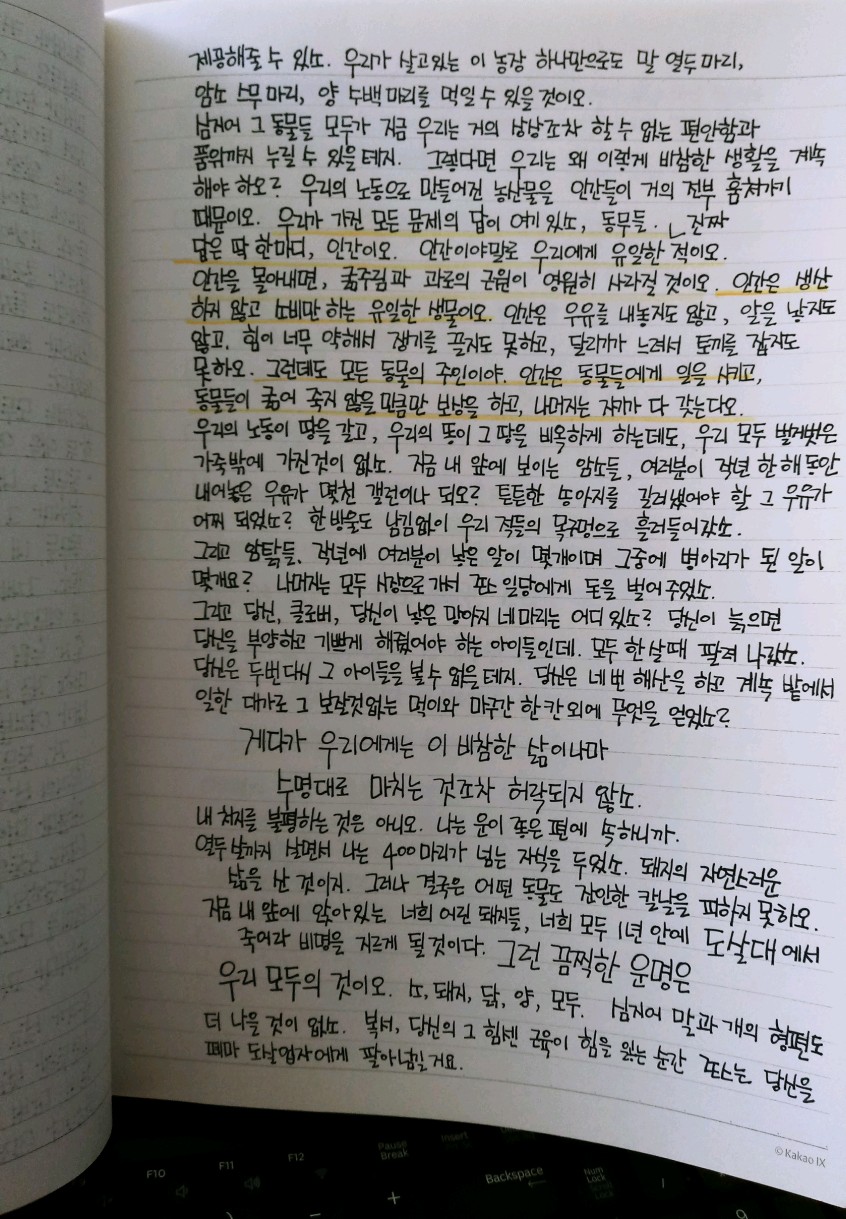 제공해줄 수 있소. 우리가 살고있는 이 농장 하나만으로도 말 열두마리,
암소 스무마리, 양 수백마리를 먹일 수 있을것이오.
심지어 그 동물들 모두가 지금 우리는 거의 상상조차 할 수 없는 편안함과
품위까지 누릴 수 있을테지. 그렇다면 우리는 왜 이렇게 비참한 생활을 계속
해야 하오? 우리의 노동으로 만들어진 농산물을 인간들이 거의 전부 훔쳐가기
때문이오. 우리가 가진 모든 문제의 답이 여기 있소, 동무들. 진짜
답은 딱 한마디, 인간이오. 인간이야말로 우리에게 유일한 적이오.
인간을 몰아내면, 굶주림과 과로의 근원이 영원히 사라질 것이오. 인간은 생산
하지 않고 소비만 하는 유일한 생물이오. 인간은 우유를 내놓지도 않고, 알을 낳지도
않고, 힘이 너무 약해서 쟁기를 끌지도 못하고, 달리기가 느려서 토끼를 잡지도
못하오. 그런데도 모든 동물의 주인이야. 인간은 동물들에게 일을 시키고,
동물들이 굶어 죽지 않을만큼만 보상을 하고, 나머지는 자기가 다 갖는다오.
우리의 노동이 땅을 갈고, 우리의 똥이 그 땅을 비옥하게 하는데도, 우리 모두 벌거벗은
가죽밖에 가진것이 없소. 지금 내 앞에 보이는 암소들, 여러분이 작년 한해동안
내어놓은 우유가 몇천 갤런이나 되오? 튼튼한 송아지를 길러냈어야 할 그 우유가
어찌 되었소? 한방울도 남김없이 우리 적들의 목구멍으로 흘러들어갔소.
그리고 암탉들, 작년에 여러분이 낳은 알이 몇개이며 그중에 병아리가 된 알이
몇개요? 나머지는 모두 시장으로 가서 존스 일당에게 돈을 벌어주었소.
그리고 당신, 클로버, 당신이 낳은 망아지 네마리는 어디 있소? 당신이 늙으면
당신을 부양하고 기쁘게 해줬어야 하는 아이들인데. 모두 한살때 팔려 나갔소.
당신은 두번다시 그 아이들을 볼수 없을테지. 당신은 네번 해산을 하고 계속 밭에서
일한 대가로 그 보잘것없는 먹이와 마구간 한칸 외에 무엇을 얻었소?
게다가 우리에게는 이 비참한 삶이나마
수명대로 마치는 것조차 허락되지 않소.
내 처지를 불평하는 것은 아니오. 나는 운이 좋은 편에 속하니까.
열두살까지 살면서 나는 400마리가 넘는 자식을 두었소. 돼지의 자연스러운
삶을 산 것이지. 그러나 결국은 어떤 동물도 잔인한 칼날을 피하지 못하오.
지금 내 앞에 앉아있는 너희 어린 돼지들, 너희 모두 1년 안에 도살대에서
죽어라 비명을 지르게 될것이다. 그런 끔찍한 운명은
우리 모두의 것이오. 소, 돼지, 닭, 양, 모두. 심지어 말과 개의 형편도
더 나을 것이 없소. 복서, 당신의 그 힘센 근육이 힘을 잃는 순간 존스는 당신을
폐마 도살업자에게 팔아넘길거요.
© Kakao IX
F10
F11
F12
Pause
Break
Insert
Backspace
Num
Lock